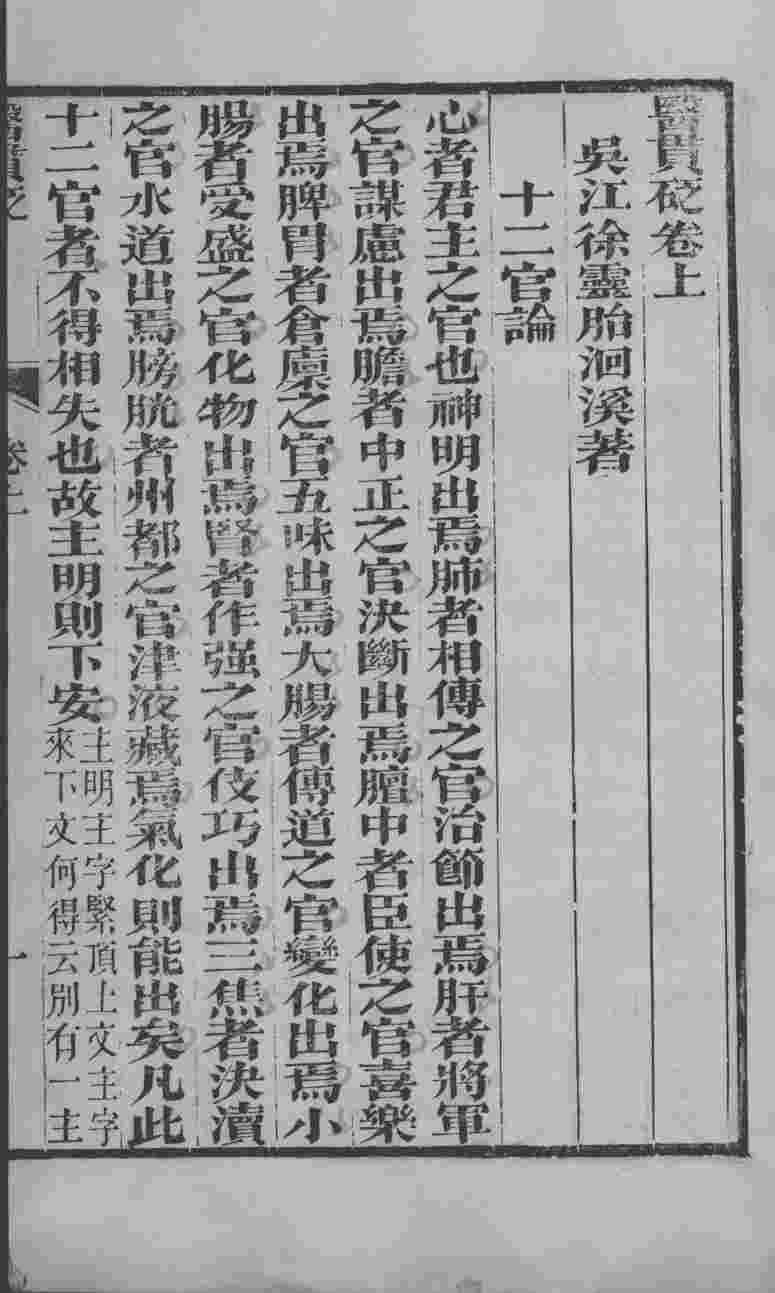 醫貫砭卷上
吳江徐靈胎洄溪著
十二官論
心者君主之官也神明出焉肺者相傳之官治節出焉肝者將軍
之官謀慮出焉膽者中正之官決斷出焉膻中者臣使之官喜樂
出焉脾胃者倉廩之官五味出焉大腸者傳道之官變化出焉小
腸者受盛之官化物出焉腎者作强之官伎巧出焉三焦者決瀆
之官水道出焉膀胱者州都之官津液藏焉氣化則能出矣凡此
十二官者不得相失也故主明則下安
主明主字緊頂上文主字
來下文何得云別有一主
醫貫砭
卷上
一